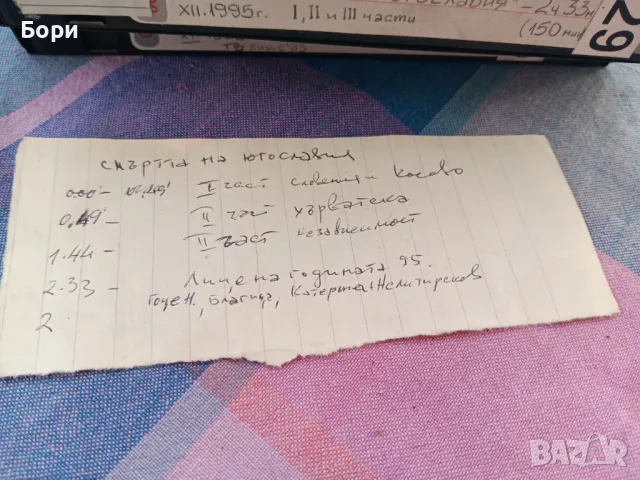 Бори
XII.1995г. I, II и III части – 2ч.33м
(150 мин)
29
смъртта на югославия
0.00' – 0.49' I част словения и Косово
0.49' – II част хърватска
1.44 – II част независимост
2.33 – Лице на годината 95.
Гоце Н., Благица, Катерта
2.
BAZAR
bazar.bg